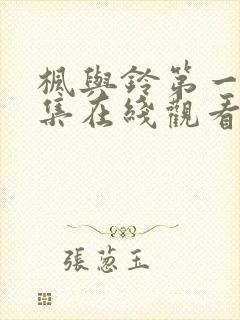 楓與鈴第一
集在綫觀看
張蔥玉